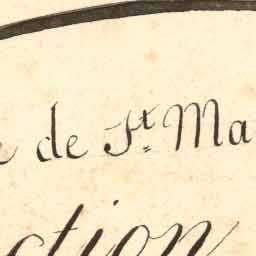 de St. Ma
ction